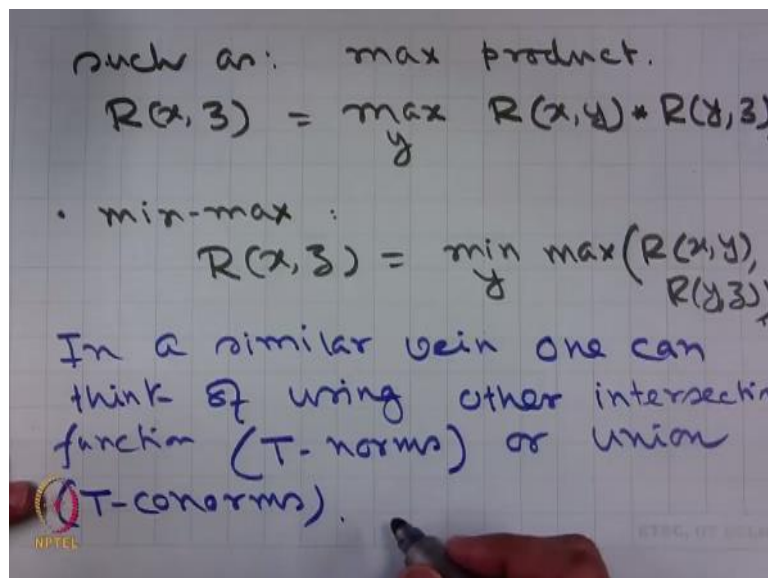 such as: max product.
R(x, z) = max R(x, y) * R(y, z)
y
• min-max :
R(x, z) = min max (R(x, y),
y R(y, z))
In a similar vein one can
think of using other intersectin
function (T-norms) or union
(T-conorms).
NPTEL